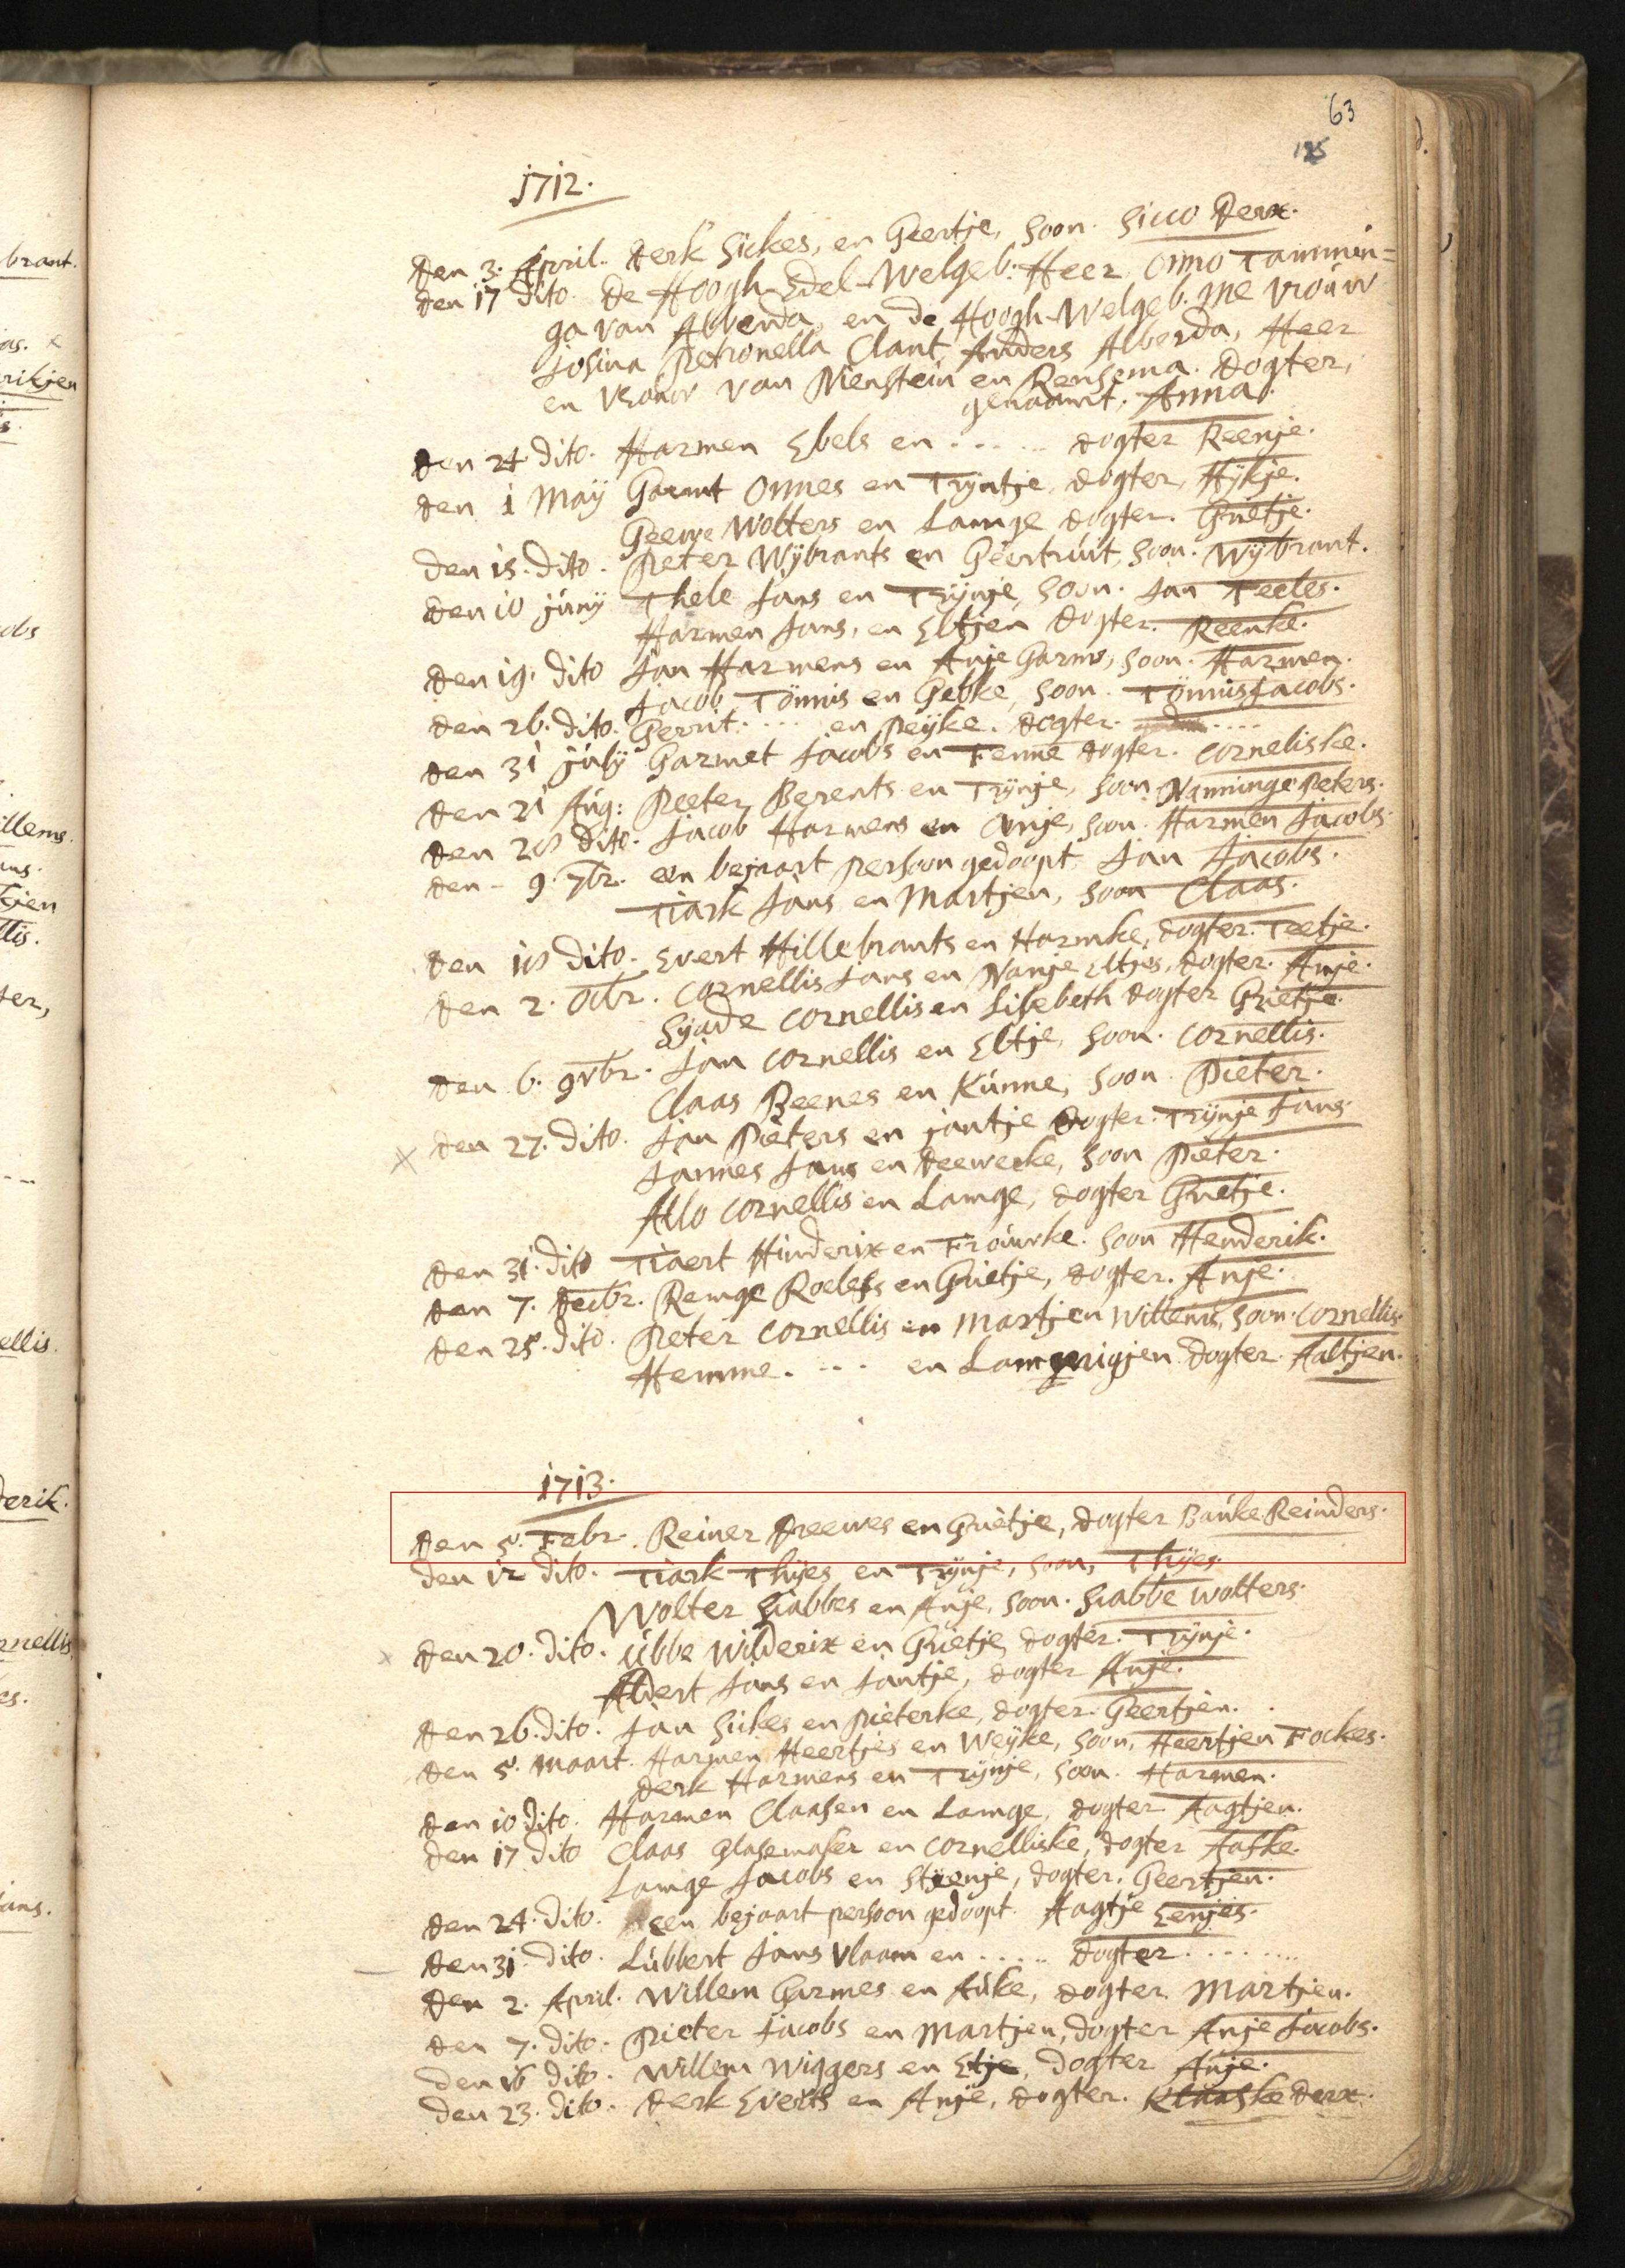 63
125
1712.
den 3. April. derk Sickes, en Geertje, soon. Sicco derx.
den 17 dito. de Hoogh-Edel-Welgeb: Heer Onno Tammin=
ga van Alberda, en de Hoogh-Welgeb. Me vrouw
Josina Petronella Clant, Anders Alberda, Heer
en vrouw van Menstein en Rensema. dogter,
genaamt, Anna.
den 24 dito. Harmen Ebels en ..... dogter Reenje.
den 1 Maÿ Garmt Onnes en Trÿntje, dogter, Hÿkje.
Geewe Wolters en Lamge dogter. Grietje.
den 15. dito. Peter Wÿbrants en Geertruit, soon. Wÿbrant.
den 10 junÿ Thele Jans en Trÿnje, soon. Jan Teeles.
Harmen Jans, en Eltjen dogter. Reenke.
den 19. dito Jan Harmens en Anje Garms, soon. Harmen.
Jacob Tönnis en Gebke, soon. Tönnis Jacobs.
den 26. dito. Gerrit .... en Peÿke. dogter. ....
den 31 julÿ Garmet Jacobs en Fenne dogter. Corneliske.
den 21 Aug: Peeter Berents en Trÿnje, soon Nanninge Peters.
den 28 dito. Jacob Harmens en Anje, soon. Harmen Jacobs.
den - 9. 7br. een bejaart persoon gedoopt Jan Jacobs.
Tiark Jans en Martjen, soon Claas.
den 18 dito. Evert Hillebrants en Harmke, dogter. Teetje.
den 2. Octbr. Cornellis Jans en Nanje Eltjes, dogter. Anje.
Sÿade Cornellis en Lisebeth dogter Grietje.
den 6. 9vbr. Jan Cornellis en Eltje, soon. Cornellis.
Claas Beenes en Kunne, soon. Pieter.
den 27. dito. Jan Pieters en jantje dogter. Trÿnje Jans
Jannes Jans en deewerke, soon Pieter.
Allo Cornellis en Lamge, dogter Grietje.
den 31. dito Tiaert Hinderix en Frouwke. soon Henderik.
den 7. decbr. Remge Roelefs en Grietje, dogter. Anje.
den 25. dito. Peter Cornellis en Martjen Willems, soon. Cornellis
Hemme. ... en Lammigjen dogter. Aaltjen.
1713.
den 5. Febr. Reiner dreewes en Grietje, dogter Bauke Reinders.
den 12 dito. Tiark Thÿes en Trÿnje, soon, Thÿes.
Wolter Siabbes en Anje, soon. Siabbe Wolters.
den 20. dito. Ubbe Wilderix en Grietje dogter. Trÿnje.
Aldert Jans en Jantje, dogter Anje.
den 26. dito. Jan Sickes en Pieterke, dogter. Geertjen.
den 5. maart. Harmen Heertjes en Weÿke, soon, Heertjen Fockes.
derk Harmens en Trÿnje, soon. Harmen.
den 10 dito. Harmen Claasen en Lamge, dogter Aagtjen.
den 17 dito Claas Glasemaker en Cornelliske, dogter Aafke.
Lamge Jacobs en Stÿenje, dogter. Geertjen.
den 24. dito. een bejaart persoon gedoopt. Aagtje Eenjes.
den 31. dito. Lubbert Jans Vlaam en ..... dogter ........
den 2. April. Willem Garmes en Auke, dogter Martjen.
den 7. dito. Pieter Jacobs en Martjen, dogter Anje Jacobs.
den 16 dito. Willem Wiggers en Etje, dogter Anje.
den 23. dito. derk Everts en Anje, dogter. Klaaske derx.